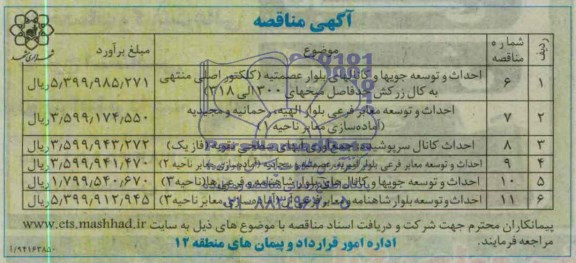 آگهی مناقصه
ردیف شماره مناقصه موضوع مبلغ برآورد
۱ ۶ احداث و توسعه جویها و کانالهای بلوار عصمتیه (کلکتور اصلی منتهی به کال زرکش حدفاصل میخهای ۱۳۰۰ الی ۳۱۸) ۵/۳۹۹/۹۸۵/۲۷۱ریال
۲ ۷ احداث و توسعه معابر فرعی بلوار الهیه، رحمانیه و مجیدیه (آماده‌سازی معابر ناحیه ۱) ۳/۵۹۹/۱۷۴/۵۵۰ریال
۳ ۸ احداث کانال سرپوشیده جمع‌آوری آبهای سطحی (فاز یک) ۳/۵۹۹/۹۴۳/۲۷۲ریال
۴ ۹ احداث و توسعه معابر فرعی بلوار (آماده‌سازی معابر ناحیه ۲) ۳/۵۹۹/۹۴۱/۴۷۰ریال
۵ ۱۰ احداث و توسعه جویها و کانال های بلوار شاهنامه و فرعی ها(ناحیه۳) ۱/۷۹۹/۵۴۰/۶۷۰ریال
۶ ۱۱ احداث و توسعه بلوار شاهنامه و معابر فرعی آن(آماده‌سازی معابر ناحیه۳) ۵/۳۹۹/۹۱۲/۹۴۵ریال
پیمانکاران محترم جهت شرکت و دریافت اسناد مناقصه با موضوع های ذیل به سایت www.ets.mashhad.ir
مراجعه فرمایند.
اداره امور قرارداد و پیمان های منطقه ۱۲
۱/۹۴۱۶۳۸۵۰